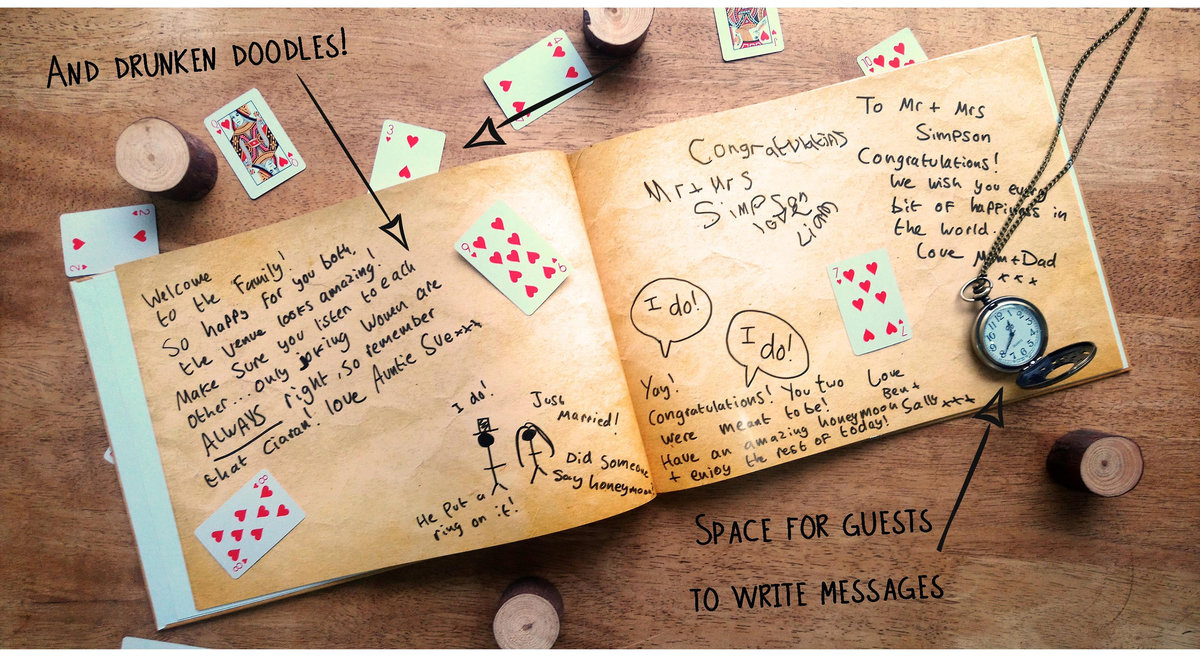 AND DRUNKEN DOODLES!
Welcome
to the Family!
So happy for you both,
the venue looks amazing!
Make Sure you listen to each
other... only joking women are
ALWAYS right, so remember
that Ciaran! love Auntie Sue xxx
I do!
Just
Married!
Did Someone
Say honeymoon
He Put a
ring on it!
Congratulations
Mr + Mrs
Simpson
love
Liam
To Mr + Mrs
Simpson
Congratulations!
We wish you every
bit of happiness in
the world.
Love Mum + Dad
x x x
I do!
I do!
Yay!
Congratulations! You two
were meant to be!
Have an amazing honeymoon
+ enjoy the rest of today!
Love
Ben +
Sally xxx
SPACE FOR GUESTS
TO WRITE MESSAGES
Q
Q
3
4
10
2
2
9
9
7
7
8
8